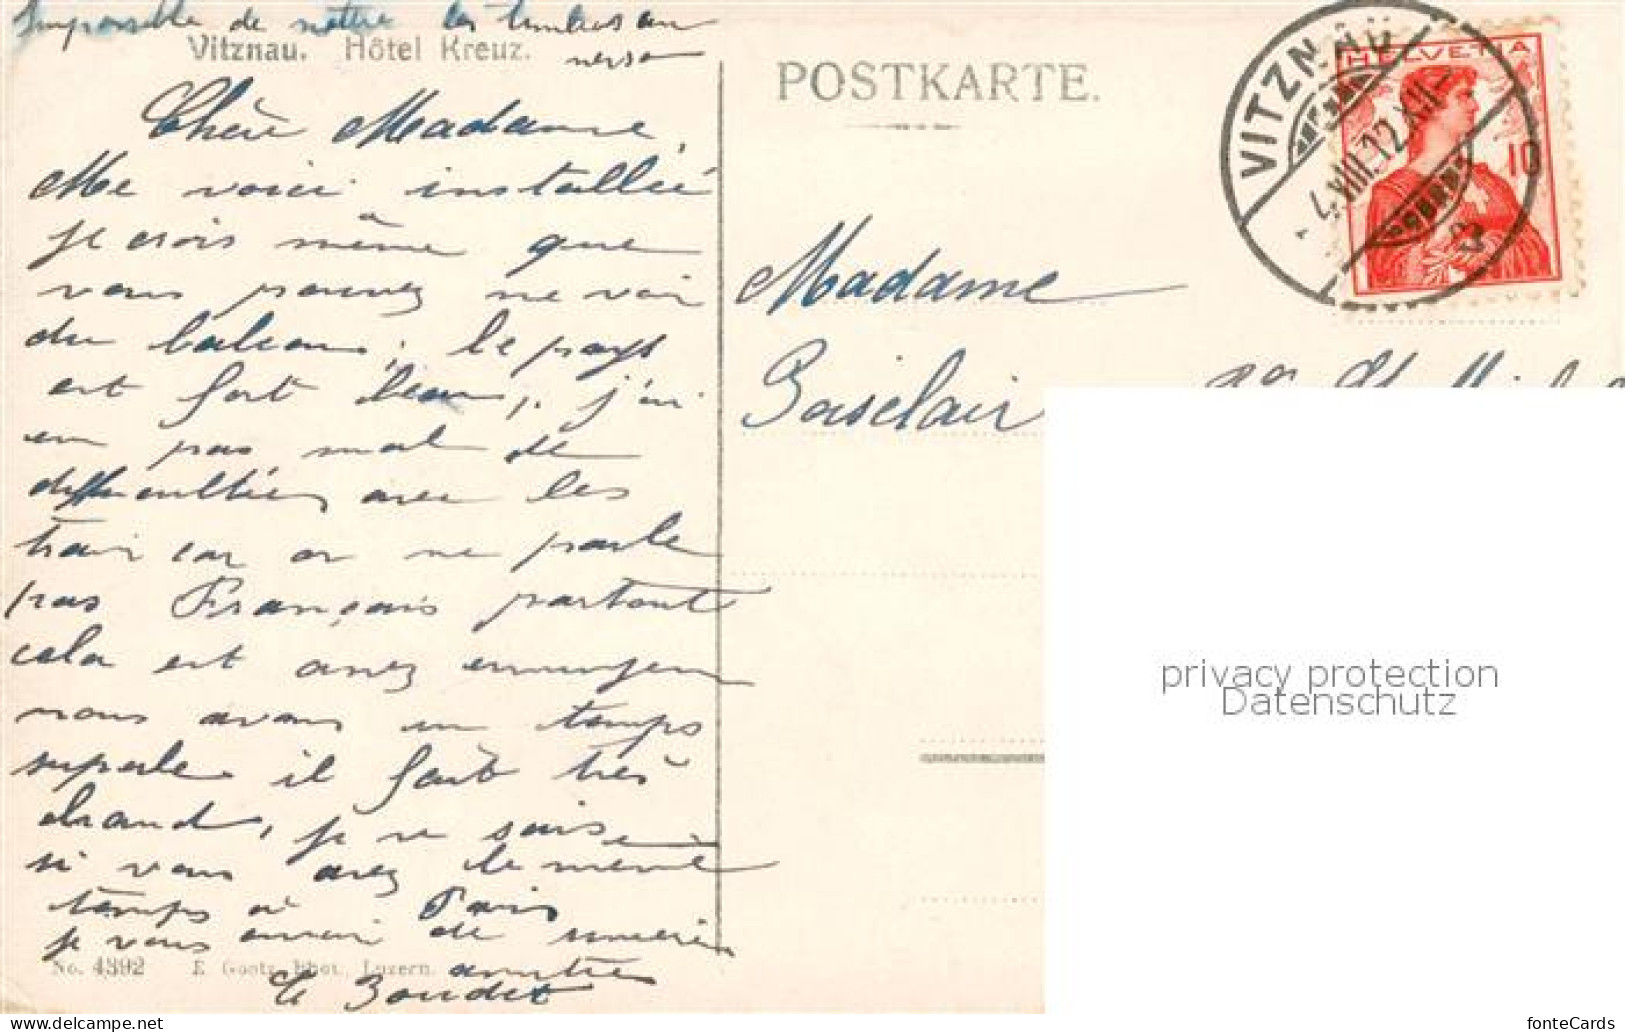 Impossible de mettre les timbres au
verso
Vitznau. Hôtel Kreuz.
POSTKARTE.
VITZNAU
4.VIII.12.XIII
HELVETIA
10
Chère Madame
Me voici installée
je crois même que
vous pouvez me voir
du balcon, le pays
est fort beau, j'ai
eu pas mal de
difficultées avec les
train car on ne parle
pas Français partout
cela est assez ennuyeu
nous avons un temps
superbe il fait très
chaud, je ne sais
si vous avez le même
temps à Paris
je vous envoie de
amitiés
Madame
Boisclair
No. 4392 E. Goetz, Phot., Luzern.
privacy protection
Datenschutz
fonteCards